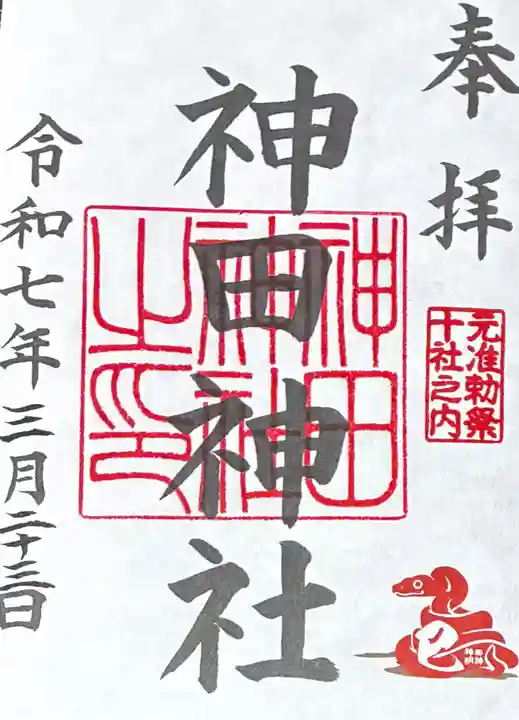 奉拝
元准勅祭
十社之内
神田神社
神田
神社
之印
巳
令和七年三月二十三日